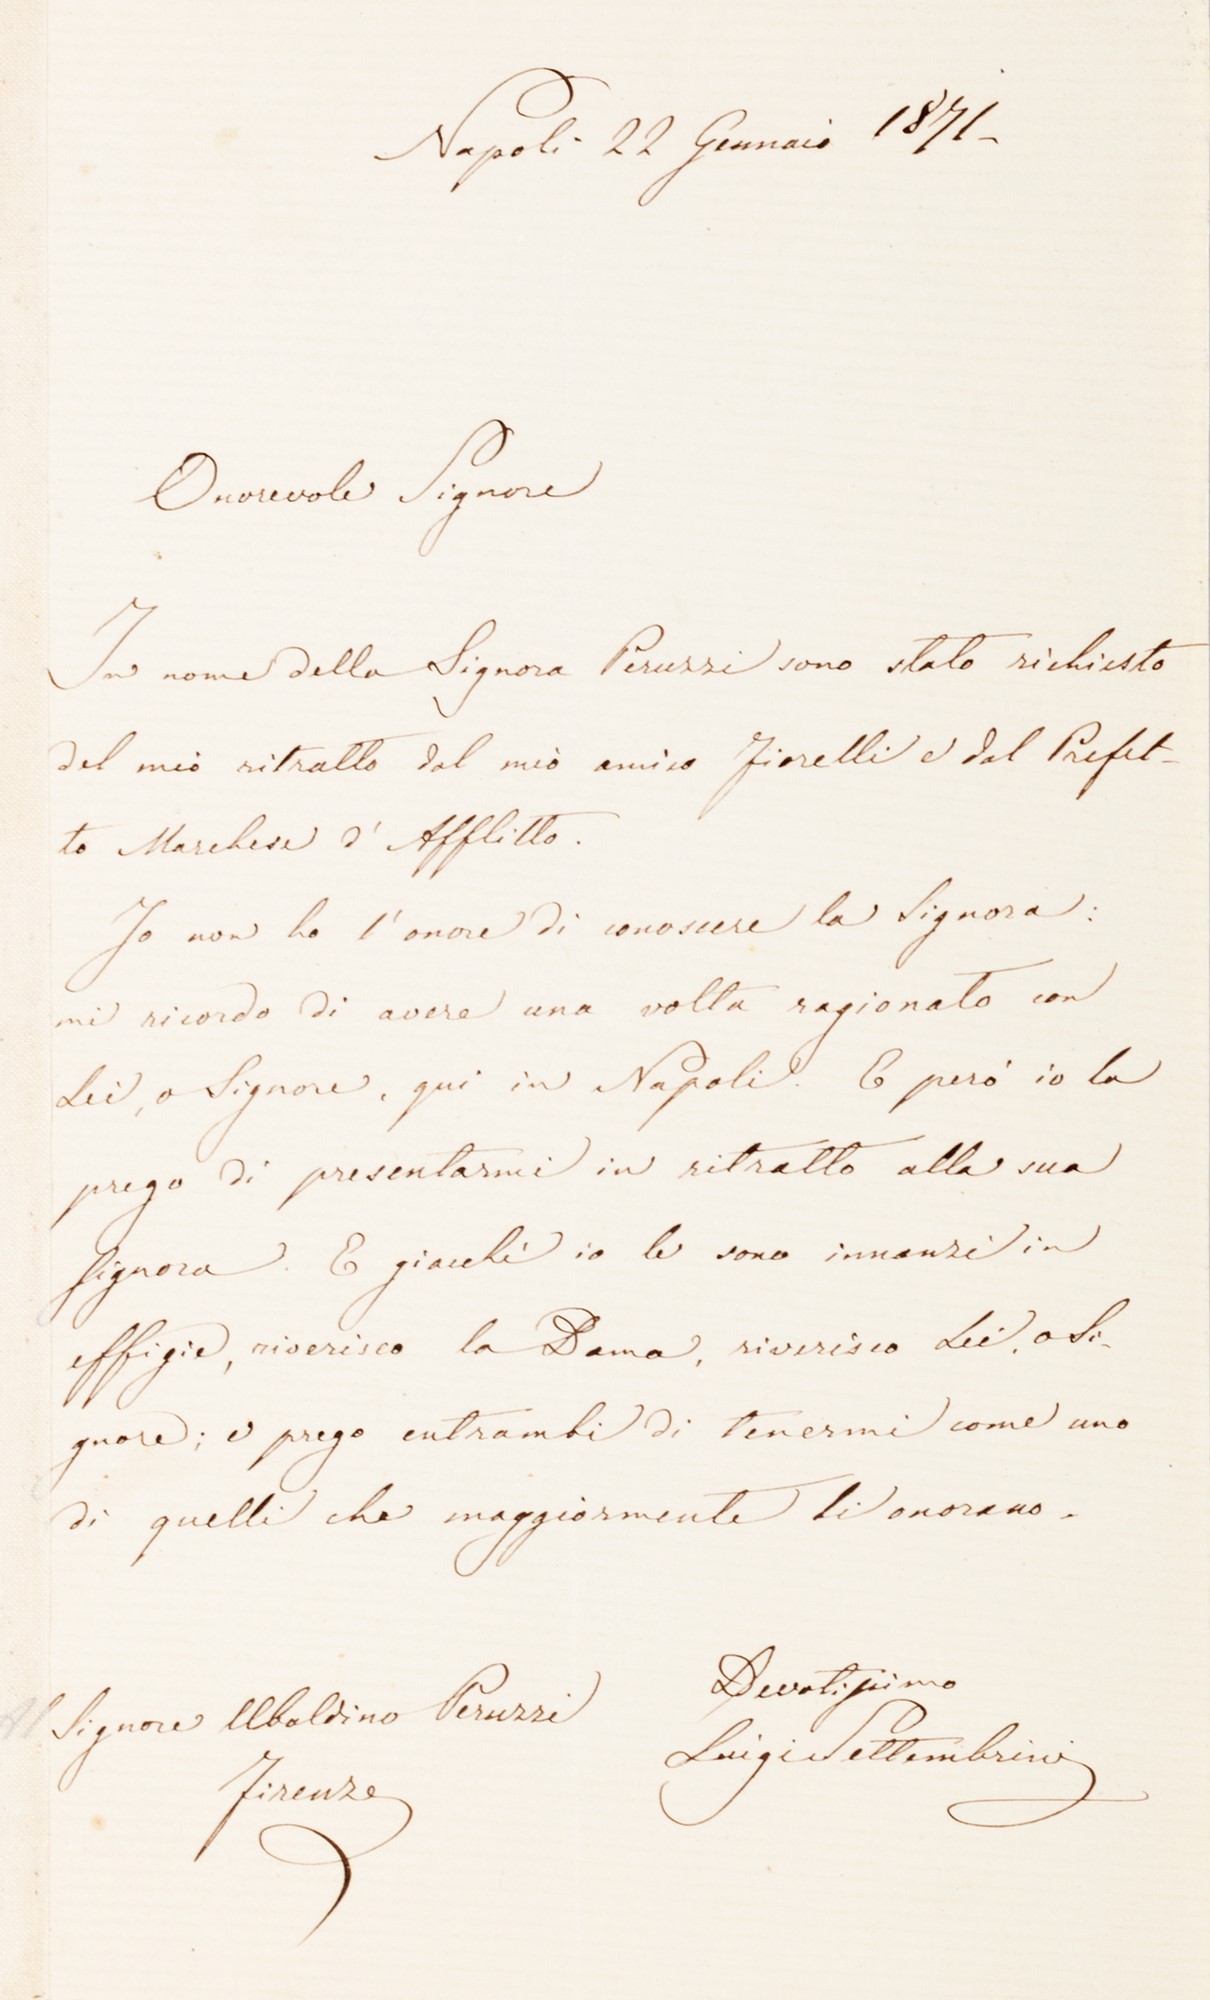 Napoli 22 Gennaio 1871-
Onorevole Signore
In nome della Signora Peruzzi sono stato richiesto
del mio ritratto dal mio amico Fiorelli e dal Prefet-
to Marchese d'Afflitto.
Io non ho l'onore di conoscere la Signora:
mi ricordo di avere una volta ragionato con
Lei, o Signore, qui in Napoli. E però io la
prego di presentarmi in ritratto alla sua
Signora. E giacchè io le sono innanzi in
effigie, riverisco la Dama, riverisco Lei, o Si-
gnore; e prego entrambi di tenermi come uno
di quelli che maggiormente li onorano.
Devotissimo
Luigi Settembrini
Al Signore Ubaldino Peruzzi
Firenze